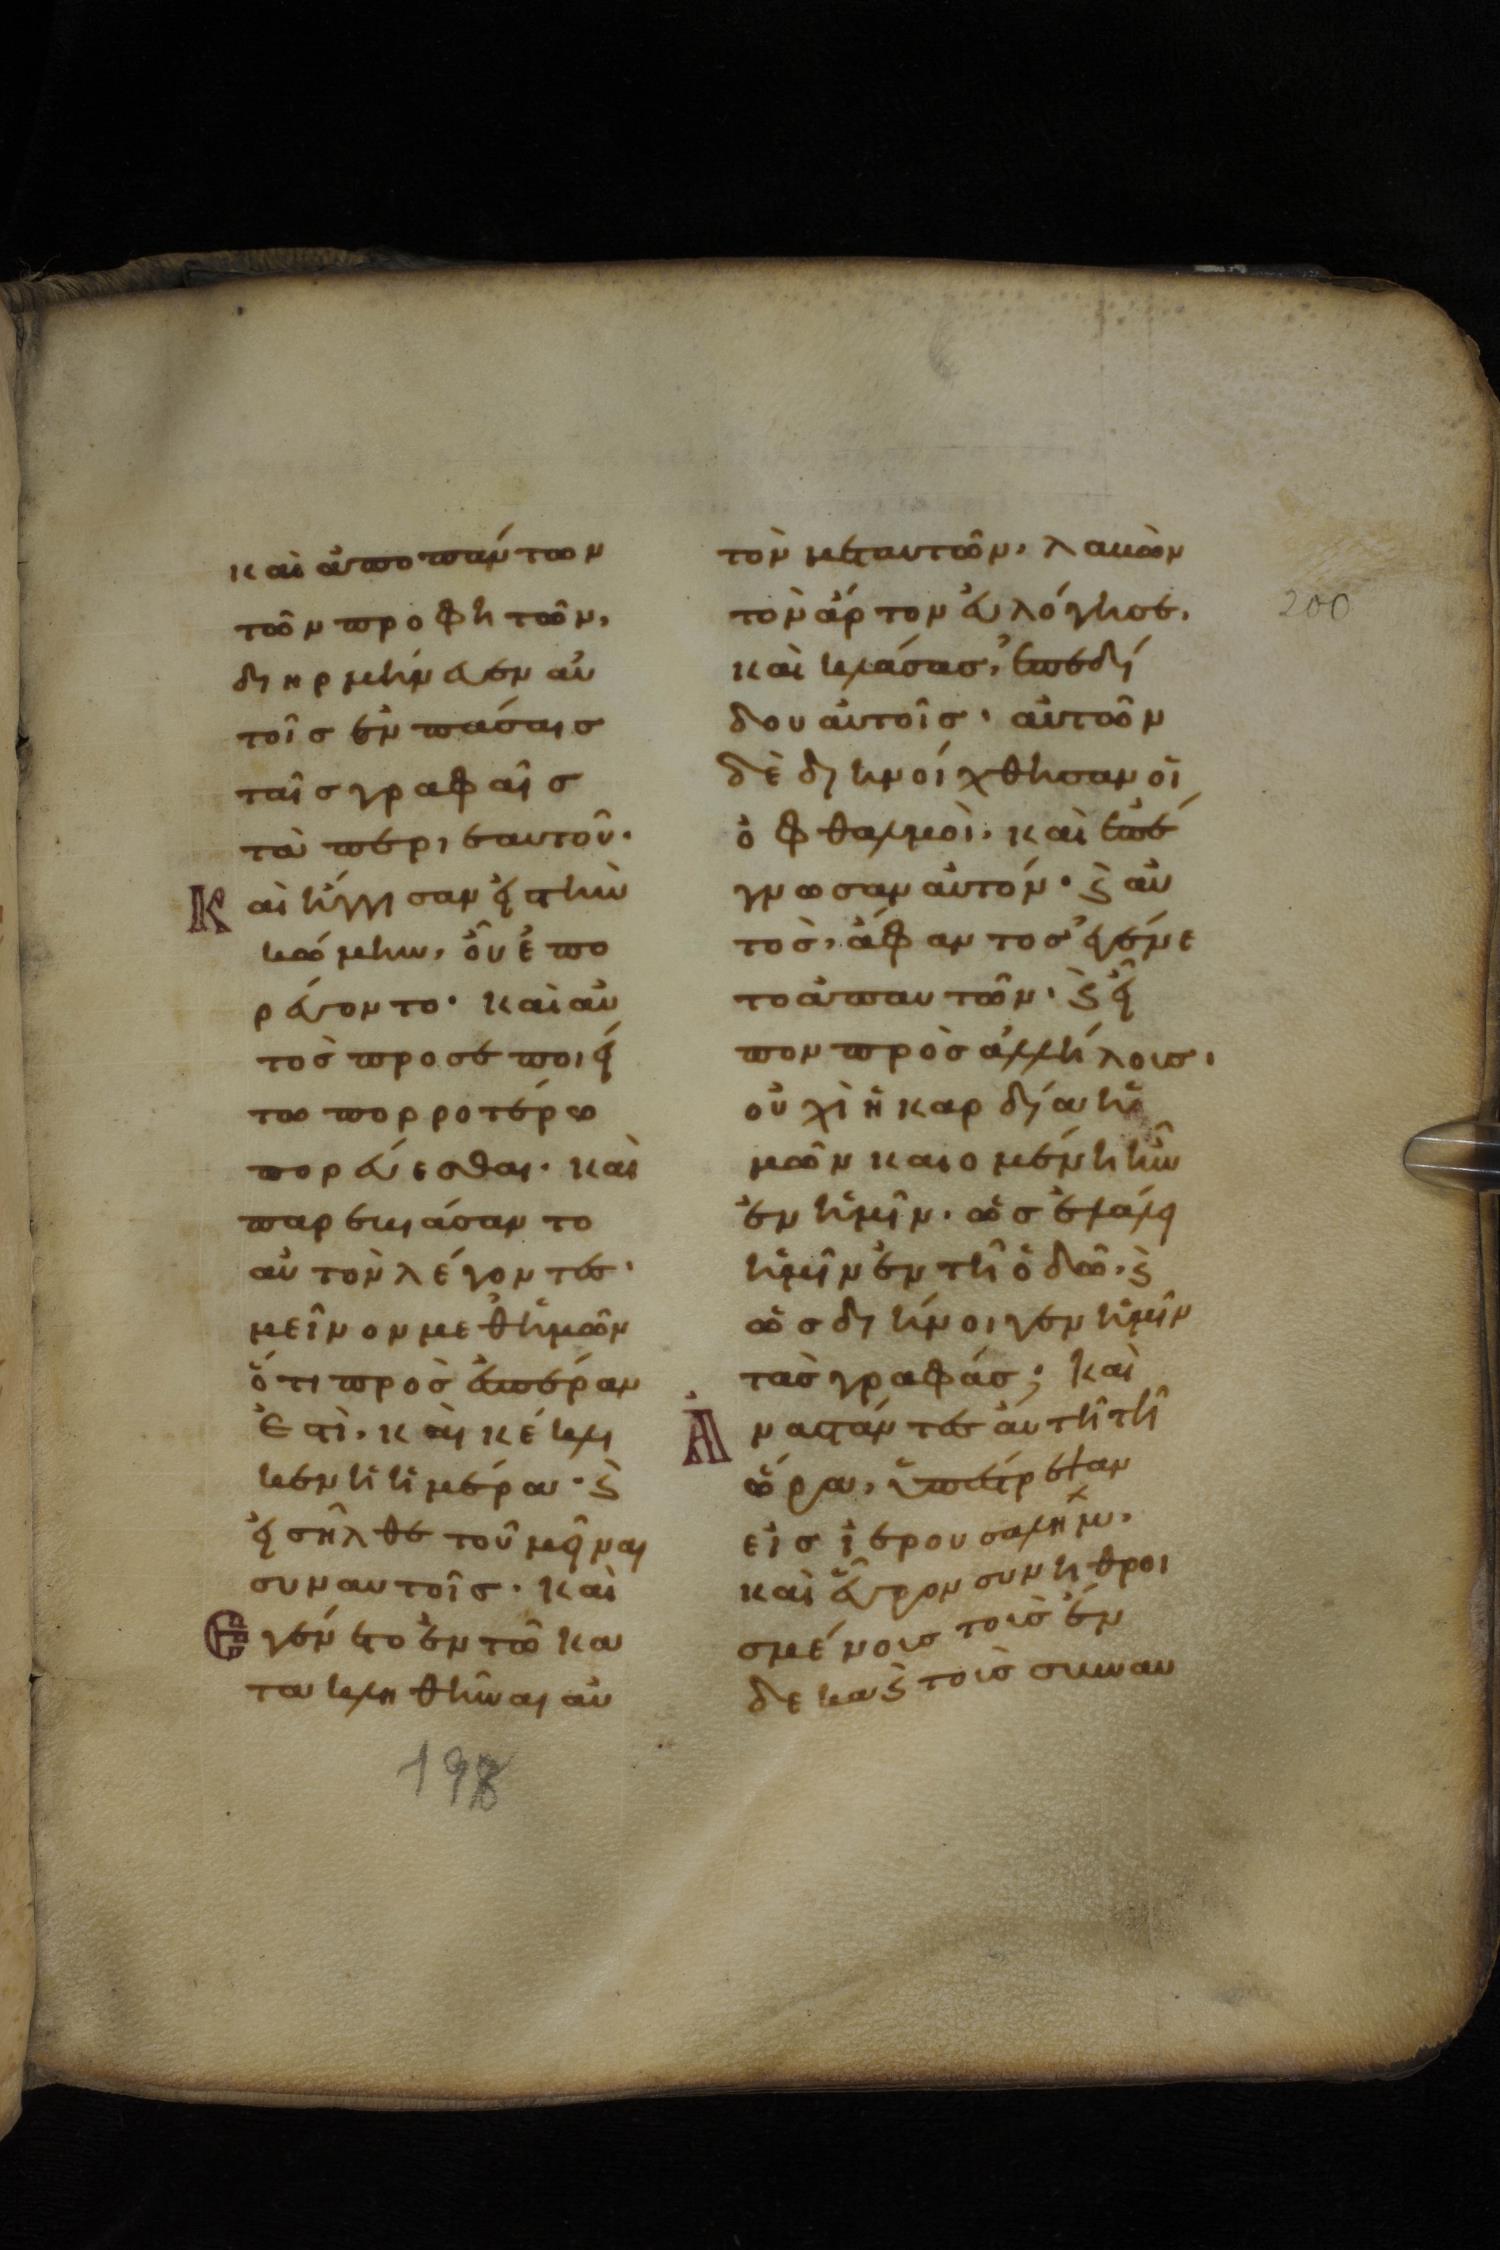 καὶ ἀπο πάντων
τῶν προφητῶν,
διηρμήνευεν αὐ
τοῖς ἐν πάσαις
ταῖς γραφαῖς
τὰ περι εαυτοῦ.
Καὶ ἤγγισαν εἰς τὴν
κώμην, οὗ ἐπο
ρεύοντο. καὶ αὐ
τὸς προσεποιεί
τω πορροτέρω
πορεύεσθαι. καὶ
παρεβιάσαντο
αὐτὸν λέγοντες.
μεῖνον μεθ ἡμῶν
ὅτι πρὸς ἑσπέραν
ἐστὶ. καὶ κέκλι
κεν ἡ ἡμέρα. ϗ
εἰσῆλθε τοῦ μεῖναι
συν αυτοῖς. καὶ
Εγένετο ἐν τῶ κα
τακληθῆναι αὐ
τὸν μετ αυτῶν, λαβὼν
τὸν ἄρτον εὐλόγησε,
καὶ κλάσας, ἐπεδί
δου αὐτοῖς. αὐτῶν
δὲ διηνοίχθησαν οἱ
ὀφθαλμοὶ. καὶ ἐπέ
γνωσαν αὐτόν. ϗ αὐ
τὸς, ἄφαντος ἐγένε
το ἀπ αυτῶν. ϗ εἶ
πον πρὸς ἀλλήλους.
οὐχὶ ἡ καρδία ἡ
μῶν καιομένη ἦν
ἐν ἡμῖν. ὡς ἐλάλει
ἡμῖν ἐν τῆ ὁδῶ, ϗ
ὡς διήνοιγεν ἡμῖν
τὰς γραφάς; καὶ
Ἀναστάντες αὐτῆ τῆ
ὥρα, ὑπέστρεψαν
εἰς ἱερουσαλήμ.
καὶ εὗρον συνηθροι
σμένους τοὺς ἕν
δεκα ϗ τοὺς συν αυ
200
198